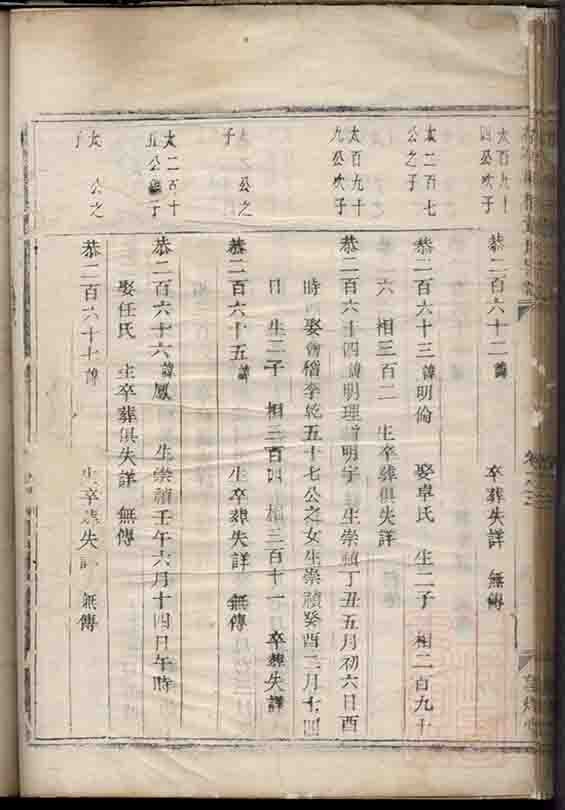 太百九十
四公次子
恭二百六十二諱 卒葬失詳 無傳
太二百七
公之子
恭二百六十三諱明倫 娶卓氏 生二子 相二百九十
六 相三百二 生卒葬俱失詳
太百九十
九公次子
恭二百六十四諱明理 明宇 生崇禎丁丑五月初六日酉
時 娶會稽李乾五十七公之女生崇禎癸酉二月七
日 生二子 相三百四 相三百十一 卒葬失詳
太 公之
子
恭二百六十五諱 生卒葬失詳 無傳
太二百十
五公 子
恭二百六十六諱鳳 生崇禎壬午六月十四日午時
娶任氏 生卒葬俱失詳 無傳
太 公之
子
恭二百六十七諱 生卒葬失詳 無傳